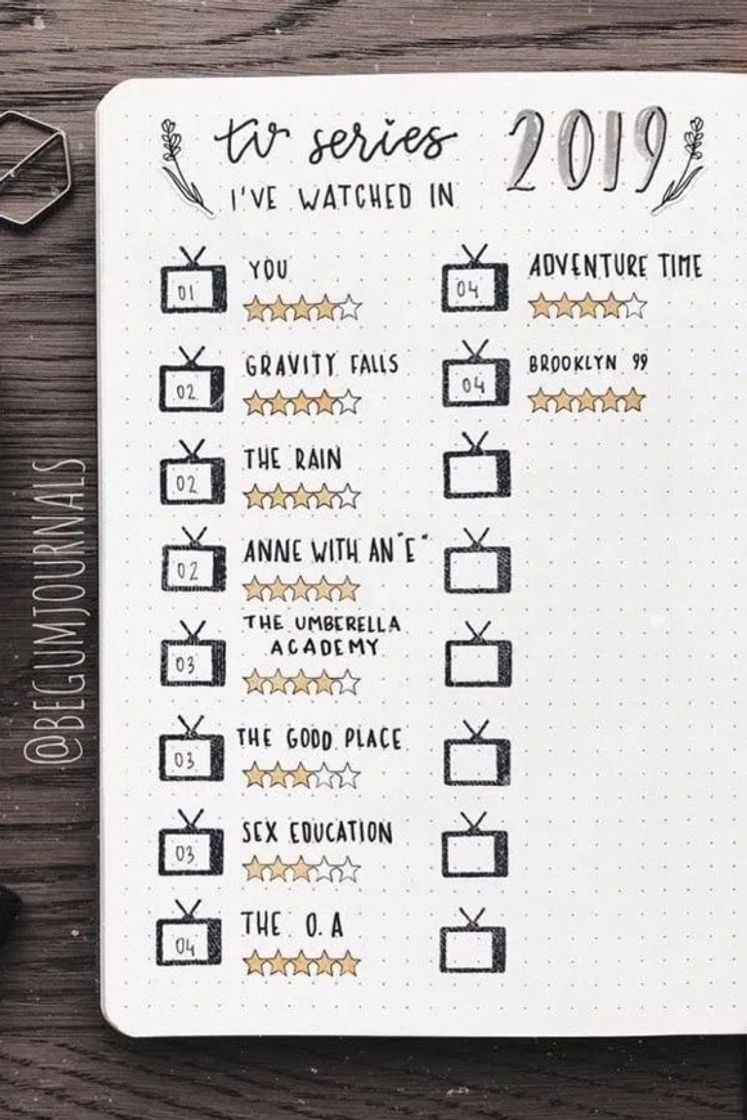 tv series 2019
I'VE WATCHED IN
01 YOU
02 GRAVITY FALLS
02 THE RAIN
02 ANNE WITH AN "E"
03 THE UMBERELLA
ACADEMY
03 THE GOOD PLACE
03 SEX EDUCATION
04 THE O.A
04 ADVENTURE TIME
04 BROOKLYN 99
@BEGUMJOURNALS